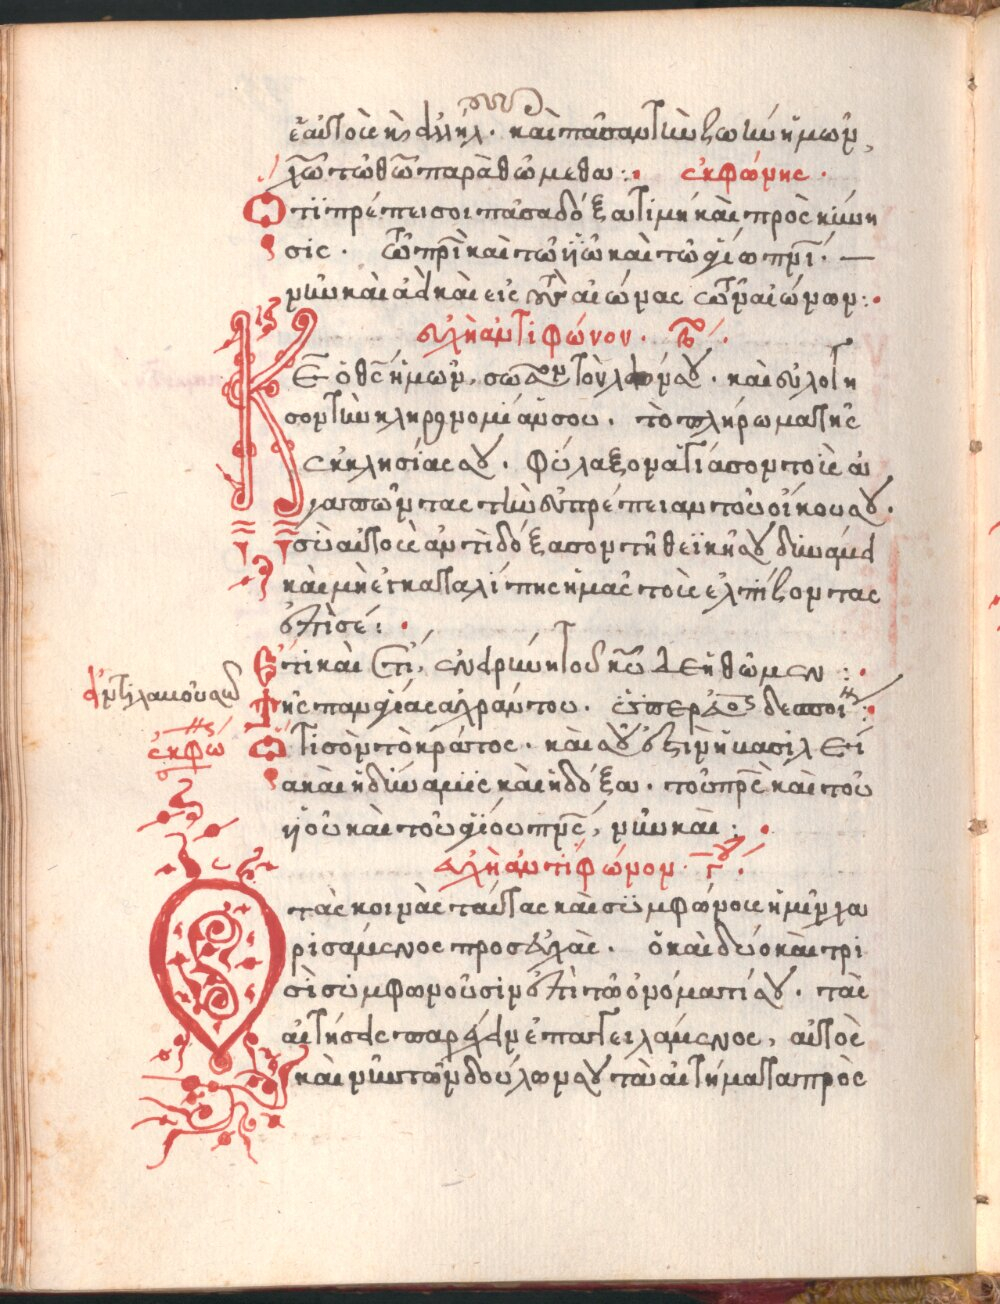 ἑαυτοὺς κὲ ἀλλήλ. καὶ πᾶσαν τὴν ζωὴν ἡμῶν,
χῶ τῶ θῶ παραθώμεθα :. ἐκφώνης.
Ὅτι πρέπει σοι πᾶσα δόξα τιμὴ καὶ προσκύνη
σις. τῶ πρὶ καὶ τῶ ϋῶ καὶ τῶ ἁγίω πνὶ. —
νῦν καὶ ἀεὶ καὶ εἰς τοὺς αἰώνας τῶν αἰώνων :.
εὐχὴ ἀντιφώνου. β΄.
Κε ὁ θς ἡμῶν, σῶσον τὸν λαόν σου. καὶ εὐλόγη
σον τὴν κληρονομίαν σου. τὸ πλήρωμα τῆς
ἐκκλησίας σου. φύλαξον ἁγίασον τοὺς ἀ
γαπῶντας τὴν εὐπρέπειαν τοῦ οἴκου σου.
σὺ αὐτοὺς ἀντιδόξασον τῆ θεϊκῆ σου δυνάμει
καὶ μὴ ἐγκαταλίπης ἡμᾶς τοὺς ἐλπίζοντας
ἐπὶ σέ :.
Ἔτι καὶ ἔτι, ἐν εἰρήνη τοῦ κυ δεηθῶμεν :.
ἀντιλαμοῦ σῶ
Τῆς παναγίας ἀχράντου. ὑπερ δεσποί :.
ἐκφώνης
Ὅτι σὸν τὸ κράτος. καὶ σοῦ ἐστὶν ἡ βασιλεί
α καὶ ἡ δύναμις καὶ ἡ δόξα. τοῦ πρς καὶ τοῦ
ϋοῦ καὶ τοῦ ἁγίου πνς, νῦν καὶ :.
εὐχὴ ἀντιφώνον. γ΄.
Ὁ τὰς κοινὰς ταύτας καὶ συμφώνους ἡμῖν χα
ρισάμενος προσευχὰς. ὁ καὶ δύο καὶ τρι
σὶ συμφωνοῦσιν ἐπὶ τῶ ὀνόματί σου. τὰς
αἰτήσεις παρέχειν ἐπαγγειλάμενος, αὐτὸς
καὶ νῦν τῶν δούλων σου τὰ αἰτήματα πρὸς